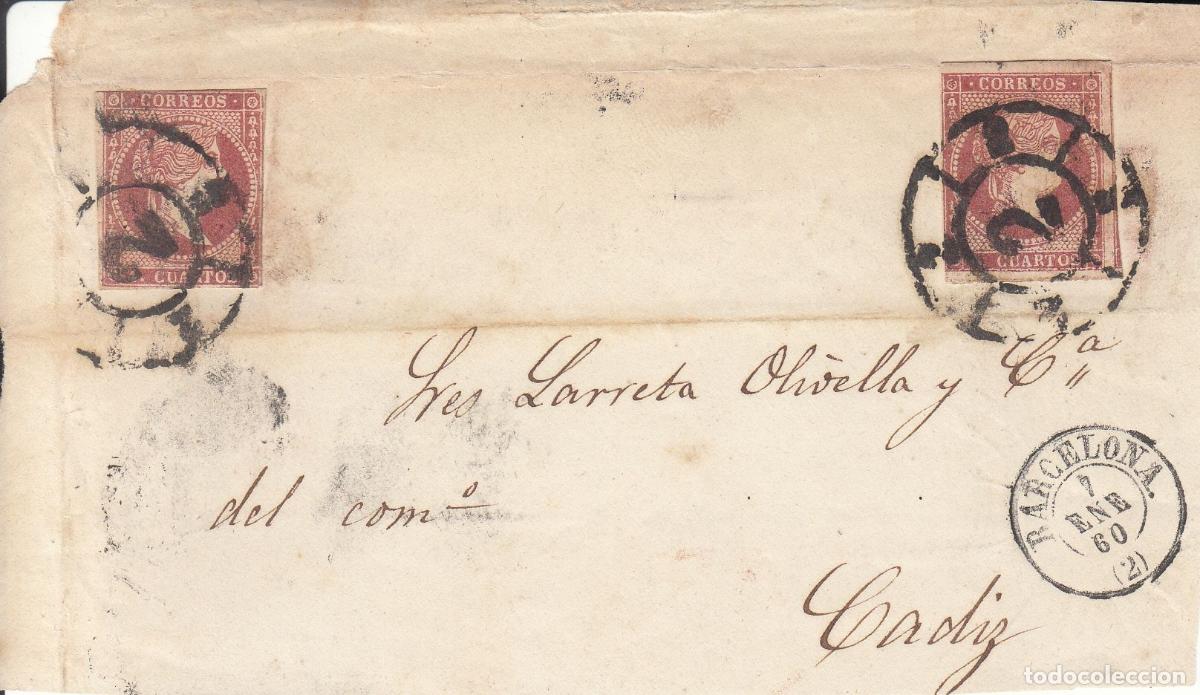 CORREOS
CORREOS
CUARTOS
CUARTOS
2
2
Sres Larreta Olivella y Cª
del comº
Cadiz
BARCELONA.
7
ENE
60
(2)
todocoleccion